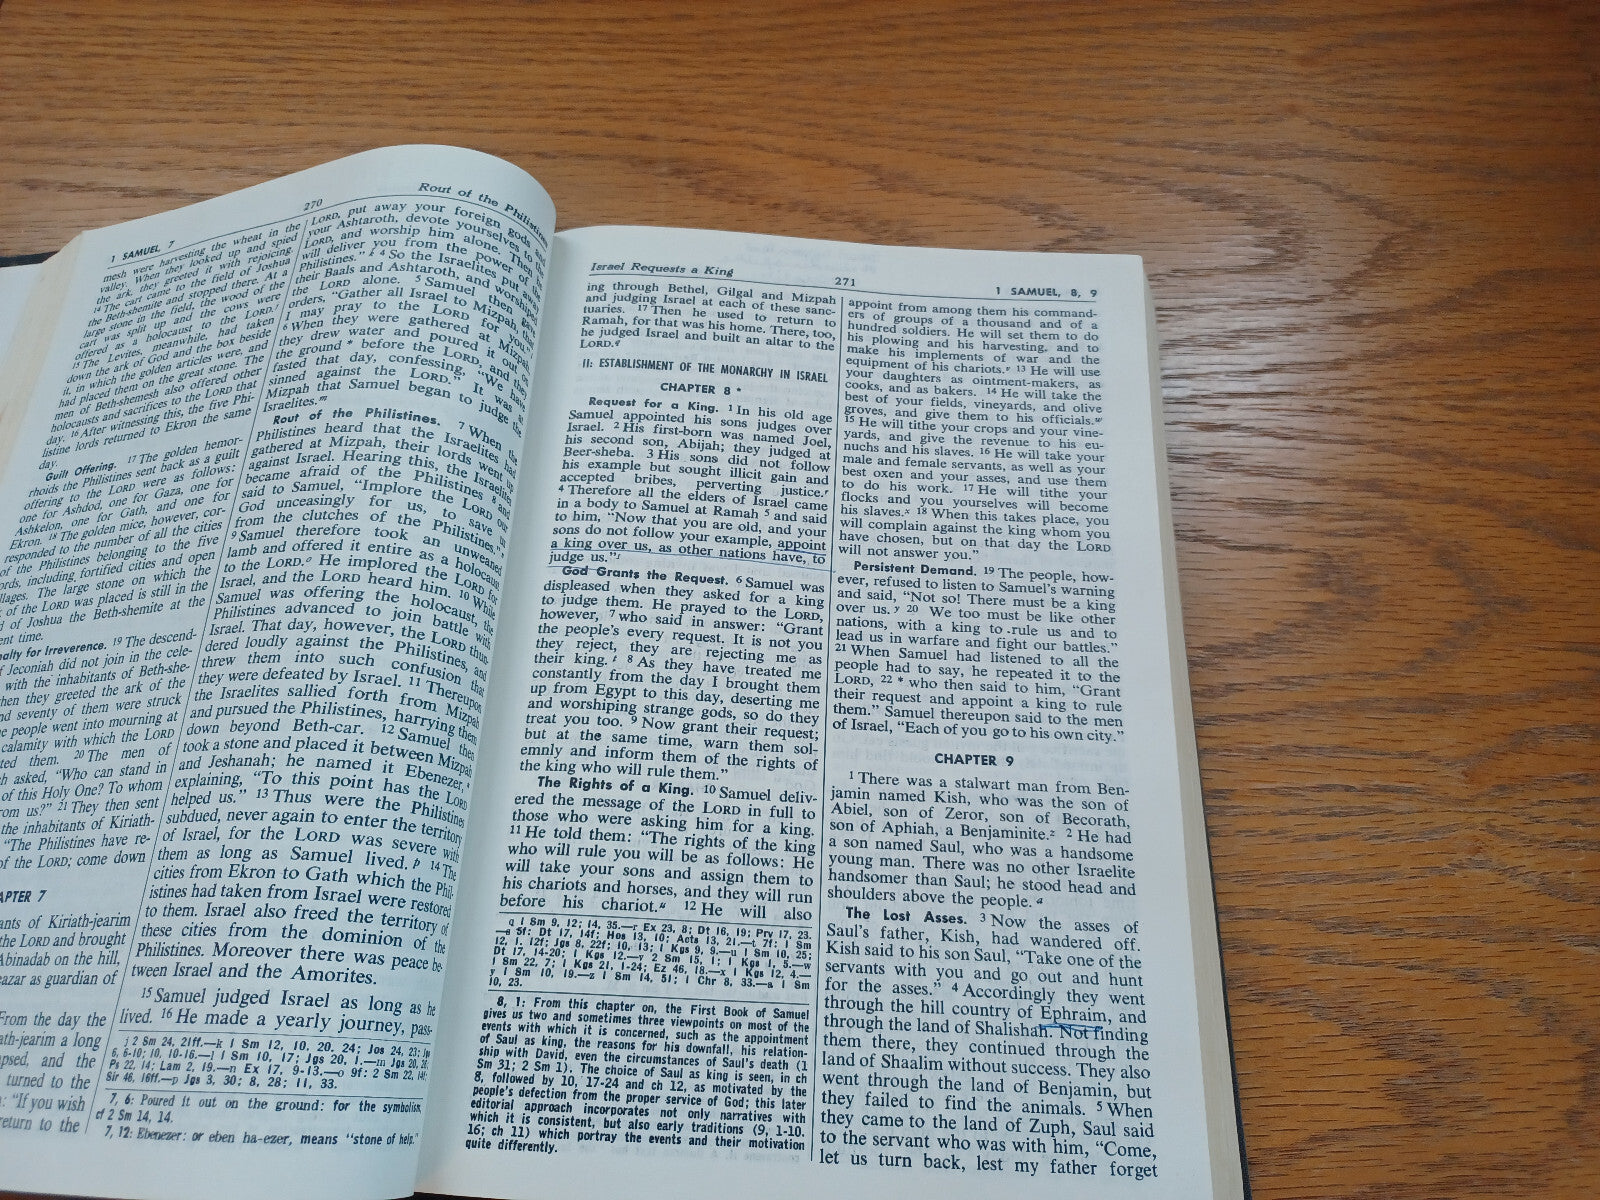 1 SAMUEL, 7
270
Rout of the Philistines
mesh were harvesting the wheat in the
valley. When they looked up and spied
the ark, they greeted it with rejoicing.
14 The cart came to the field of Joshua
the Beth-shemite and stopped there. At a
large stone in the field, the wood of the
cart was split up and the cows were
offered as a holocaust to the LORD.
15 The Levites, meanwhile, had taken
down the ark of God and the box beside
it, in which the golden articles were, and
had placed them on the great stone. The
men of Beth-shemesh also offered other
holocausts and sacrifices to the LORD that
day. 16 After witnessing this, the five Phi-
listine lords returned to Ekron the same
day.
Guilt Offering. 17 The golden hemor-
rhoids the Philistines sent back as a guilt
offering to the LORD were as follows:
one for Ashdod, one for Gaza, one for
Ashkelon, one for Gath, and one for
Ekron. 18 The golden mice, however, cor-
responded to the number of all the cities
of the Philistines belonging to the five
lords, including fortified cities and open
villages. The large stone on which the
of the LORD was placed is still in the
of Joshua the Beth-shemite at the
time.
for Irreverence. 19 The descend-
of Jeconiah did not join in the cele-
with the inhabitants of Beth-she-
when they greeted the ark of the
and seventy of them were struck
people went into mourning at
calamity with which the LORD
them. 20 The men of
asked, "Who can stand in
of this Holy One? To whom
from us?" 21 They then sent
the inhabitants of Kiriath-
"The Philistines have re-
of the LORD; come down
CHAPTER 7
of Kiriath-jearim
the LORD and brought
Abinadab on the hill,
as guardian of
From the day the
a long
and the
turned to the
"If you wish
return to the
LORD, put away your foreign gods and
your Ashtaroth, devote yourselves to the
LORD, and worship him alone. Then he
will deliver you from the power of the
Philistines." k 4 So the Israelites put away
their Baals and Ashtaroth, and worshiped
the LORD alone. 5 Samuel then gave
orders, "Gather all Israel to Mizpah, that
I may pray to the LORD for you."
6 When they were gathered at Mizpah,
they drew water and poured it out on
the ground * before the LORD, and they
fasted that day, confessing, "We have
sinned against the LORD." It was at
Mizpah that Samuel began to judge the
Israelites.m
Rout of the Philistines. 7 When the
Philistines heard that the Israelites had
gathered at Mizpah, their lords went up
against Israel. Hearing this, the Israelites
became afraid of the Philistines 8 and
said to Samuel, "Implore the LORD our
God unceasingly for us, to save us
from the clutches of the Philistines."
9 Samuel therefore took an unweaned
lamb and offered it entire as a holocaust
to the LORD.o He implored the LORD for
Israel, and the LORD heard him. 10 While
Samuel was offering the holocaust, the
Philistines advanced to join battle with
Israel. That day, however, the LORD thun-
dered loudly against the Philistines, and
threw them into such confusion that
they were defeated by Israel. 11 Thereupon
the Israelites sallied forth from Mizpah
and pursued the Philistines, harrying them
down beyond Beth-car. 12 Samuel then
took a stone and placed it between Mizpah
and Jeshanah; he named it Ebenezer,*
explaining, "To this point has the LORD
helped us." 13 Thus were the Philistines
subdued, never again to enter the territory
of Israel, for the LORD was severe with
them as long as Samuel lived. p 14 The
cities from Ekron to Gath which the Phil-
istines had taken from Israel were restored
to them. Israel also freed the territory of
these cities from the dominion of the
Philistines. Moreover there was peace be-
tween Israel and the Amorites.
15 Samuel judged Israel as long as he
lived. 16 He made a yearly journey, pass-
j 2 Sm 24, 21ff.—k 1 Sm 12, 10. 20. 24; Jos 24, 23; Jgs
6, 6-10; 10, 10-16.—l 1 Sm 10, 17; Jgs 20, 1.—m Jgs 20, 26;
Ps 22, 14; Lam 2, 19.—n Ex 17, 9-13.—o 9f: 2 Sm 22, 14f;
Sir 46, 16ff.—p Jgs 3, 30; 8, 28; 11, 33.
7, 6: Poured it out on the ground: for the symbolism,
cf 2 Sm 14, 14.
7, 12: Ebenezer: or eben ha-ezer, means "stone of help."
Israel Requests a King
271
1 SAMUEL, 8, 9
ing through Bethel, Gilgal and Mizpah
and judging Israel at each of these sanc-
tuaries. 17 Then he used to return to
Ramah, for that was his home. There, too,
he judged Israel and built an altar to the
LORD.q
II: ESTABLISHMENT OF THE MONARCHY IN ISRAEL
CHAPTER 8 *
Request for a King. 1 In his old age
Samuel appointed his sons judges over
Israel. 2 His first-born was named Joel,
his second son, Abijah; they judged at
Beer-sheba. 3 His sons did not follow
his example but sought illicit gain and
accepted bribes, perverting justice.r
4 Therefore all the elders of Israel came
in a body to Samuel at Ramah 5 and said
to him, "Now that you are old, and your
sons do not follow your example, appoint
a king over us, as other nations have, to
judge us."s
God Grants the Request. 6 Samuel was
displeased when they asked for a king
to judge them. He prayed to the LORD,
however, 7 who said in answer: "Grant
the people's every request. It is not you
they reject, they are rejecting me as
their king. t 8 As they have treated me
constantly from the day I brought them
up from Egypt to this day, deserting me
and worshiping strange gods, so do they
treat you too. 9 Now grant their request;
but at the same time, warn them sol-
emnly and inform them of the rights of
the king who will rule them."
The Rights of a King. 10 Samuel deliv-
ered the message of the LORD in full to
those who were asking him for a king.
11 He told them: "The rights of the king
who will rule you will be as follows: He
will take your sons and assign them to
his chariots and horses, and they will run
before his chariot.u 12 He will also
q 1 Sm 9, 12; 14, 35.—r Ex 23, 8; Dt 16, 19; Prv 17, 23.
—s 5f: Dt 17, 14f; Hos 13, 10; Acts 13, 21.—t 7f: 1 Sm
12, 1. 12f; Jgs 8, 22f; 10, 13; 1 Kgs 9, 9.—u 1 Sm 10, 25;
Dt 17, 14-20; 1 Kgs 12.—v 2 Sm 15, 1; 1 Kgs 1, 5.—w
1 Sm 22, 7; 1 Kgs 21, 1-24; Ez 46, 18.—x 1 Kgs 12, 4.—
y 1 Sm 10, 19.—z 1 Sm 14, 51; 1 Chr 8, 33.—a 1 Sm
10, 23.
8, 1: From this chapter on, the First Book of Samuel
gives us two and sometimes three viewpoints on most of the
events with which it is concerned, such as the appointment
of Saul as king, the reasons for his downfall, his relation-
ship with David, even the circumstances of Saul's death (1
Sm 31; 2 Sm 1). The choice of Saul as king is seen, in ch
8, followed by 10, 17-24 and ch 12, as motivated by the
people's defection from the proper service of God; this later
editorial approach incorporates not only narratives with
which it is consistent, but also early traditions (9, 1-10.
16; ch 11) which portray the events and their motivation
quite differently.
appoint from among them his command-
ers of groups of a thousand and of a
hundred soldiers. He will set them to do
his plowing and his harvesting, and to
make his implements of war and the
equipment of his chariots.v 13 He will use
your daughters as ointment-makers, as
cooks, and as bakers. 14 He will take the
best of your fields, vineyards, and olive
groves, and give them to his officials.w
15 He will tithe your crops and your vine-
yards, and give the revenue to his eu-
nuchs and his slaves. 16 He will take your
male and female servants, as well as your
best oxen and your asses, and use them
to do his work. 17 He will tithe your
flocks and you yourselves will become
his slaves.x 18 When this takes place, you
will complain against the king whom you
have chosen, but on that day the LORD
will not answer you."
Persistent Demand. 19 The people, how-
ever, refused to listen to Samuel's warning
and said, "Not so! There must be a king
over us. y 20 We too must be like other
nations, with a king to rule us and to
lead us in warfare and fight our battles."
21 When Samuel had listened to all the
people had to say, he repeated it to the
LORD, 22 * who then said to him, "Grant
their request and appoint a king to rule
them." Samuel thereupon said to the men
of Israel, "Each of you go to his own city."
CHAPTER 9
1 There was a stalwart man from Ben-
jamin named Kish, who was the son of
Abiel, son of Zeror, son of Becorath,
son of Aphiah, a Benjaminite.z 2 He had
a son named Saul, who was a handsome
young man. There was no other Israelite
handsomer than Saul; he stood head and
shoulders above the people. a
The Lost Asses. 3 Now the asses of
Saul's father, Kish, had wandered off.
Kish said to his son Saul, "Take one of the
servants with you and go out and hunt
for the asses." 4 Accordingly they went
through the hill country of Ephraim, and
through the land of Shalishah. Not finding
them there, they continued through the
land of Shaalim without success. They also
went through the land of Benjamin, but
they failed to find the animals. 5 When
they came to the land of Zuph, Saul said
to the servant who was with him, "Come,
let us turn back, lest my father forget